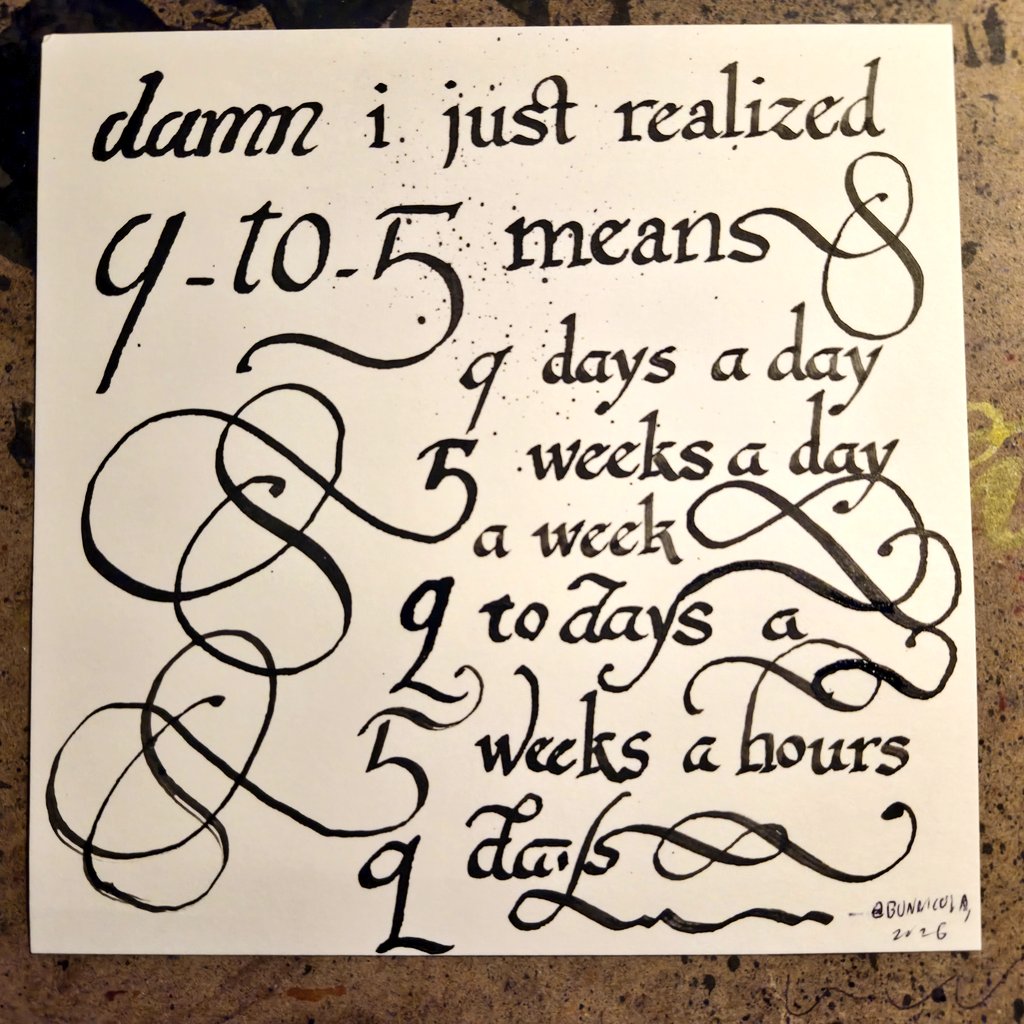 damn i just realized
9-to-5 means
9 days a day
5 weeks a day
a week
9 to days a
5 weeks a hours
9 days
- @BUNNICULA,
2026